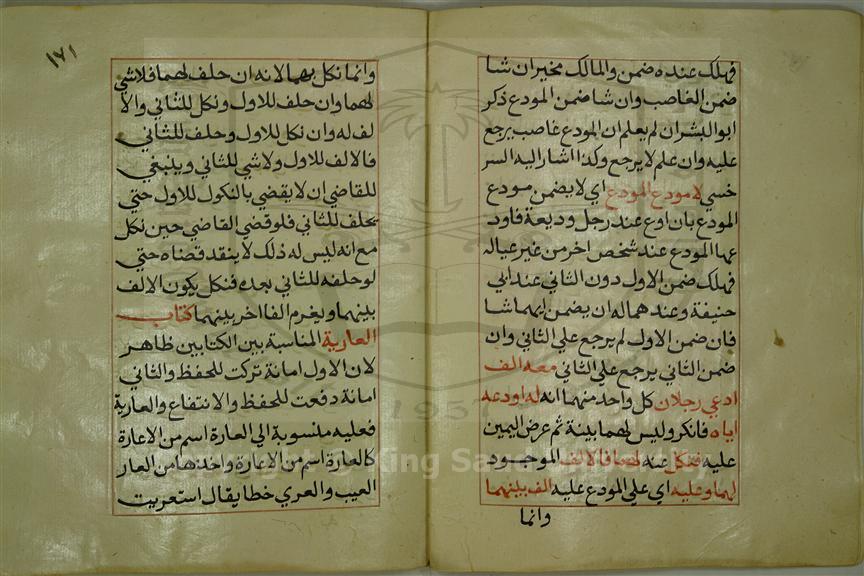 فهلك عنده ضمن والمالك مخير ان شا
ضمن الغاصب وان شا ضمن المودع ذكر
ابو البشر ان لم يعلم ان المودع غاصب يرجع
عليه وان علم لا يرجع وكذا اشار اليه السر
خسي لا مودع المودع اي لا يضمن مودع
المودع بان اوع عند رجل وديعة فاود
عها المودع عند شخص اخر من غير عياله
فهلك ضمن الاول دون الثاني عند ابي
حنيفة وعندهما له ان يضمن ايهما شا
فان ضمن الاول لم يرجع علي الثاني وان
ضمن الثاني يرجع علي الثاني معه الف
ادعي رجلان كل واحد منهما انه له اودعه
اياه فانكر وليس لهما بينة ثم عرض اليمين
عليه فنكل عنه لهما فالالف الموجود
لهما وعليه اي علي المودع عليه الف بينهما
وانما
١٧١
وانما نكل بهما لانه ان حلف لهما فلا شي
لهما وان حلف للاول ونكل للثاني والا
لف له وان نكل للاول وحلف للثاني
فالالف للاول ولا شي للثاني وينبغي
للقاضي ان لا يقضي بالنكول للاول حتي
يحلف للثاني فلو قضي القاضي حين نكل
مع انه ليس له ذلك لا ينفذ قضاه حتي
لو حلفه للثاني بعده فنكل يكون الالف
بينهما ويغرم الفا اخر بينهما كتاب
العارية المناسبة بين الكتابين ظاهر
لان الاول امانة تركت للحفظ والثاني
امانة دفعت للحفظ والانتفاع والعارية
فعليه منسوبة الي العارة اسم من الاعارة
كالعارة اسم من الاعارة واخذها من العار
العيب والعري خطا يقال استعريت